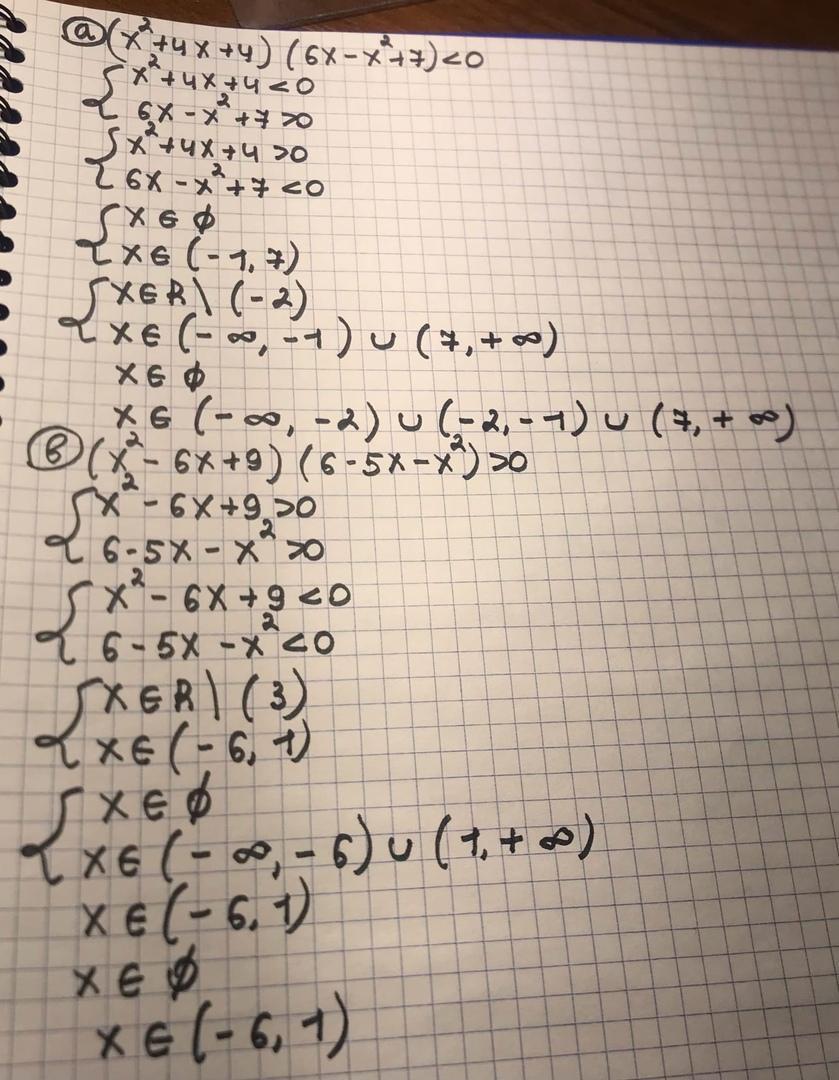 а) (x²+4x+4) (6x-x²+7)<0
{ x²+4x+4<0
6x-x²+7>0
{ x²+4x+4>0
6x-x²+7<0
{ x∈∅
x∈(-1,7)
{ x∈R\(-2)
x∈(-∞,-1)∪(7,+∞)
x∈∅
x∈(-∞,-2)∪(-2,-1)∪(7,+∞)
в) (x²-6x+9) (6-5x-x²)>0
{ x²-6x+9>0
6-5x-x²>0
{ x²-6x+9<0
6-5x-x²<0
{ x∈R\(3)
x∈(-6,1)
{ x∈∅
x∈(-∞,-6)∪(1,+∞)
x∈(-6,1)
x∈∅
x∈(-6,1)